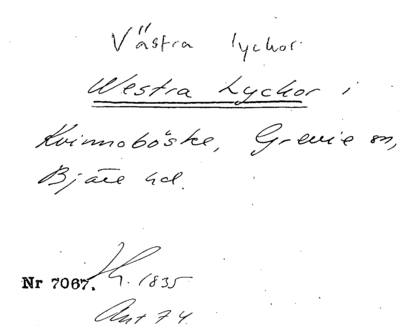 Västra lyckor
Westra Lyckor i
Kvinnoböske, Grevie sn,
Bjäre hd.
Nr 7067. H. 1835
Akt 74